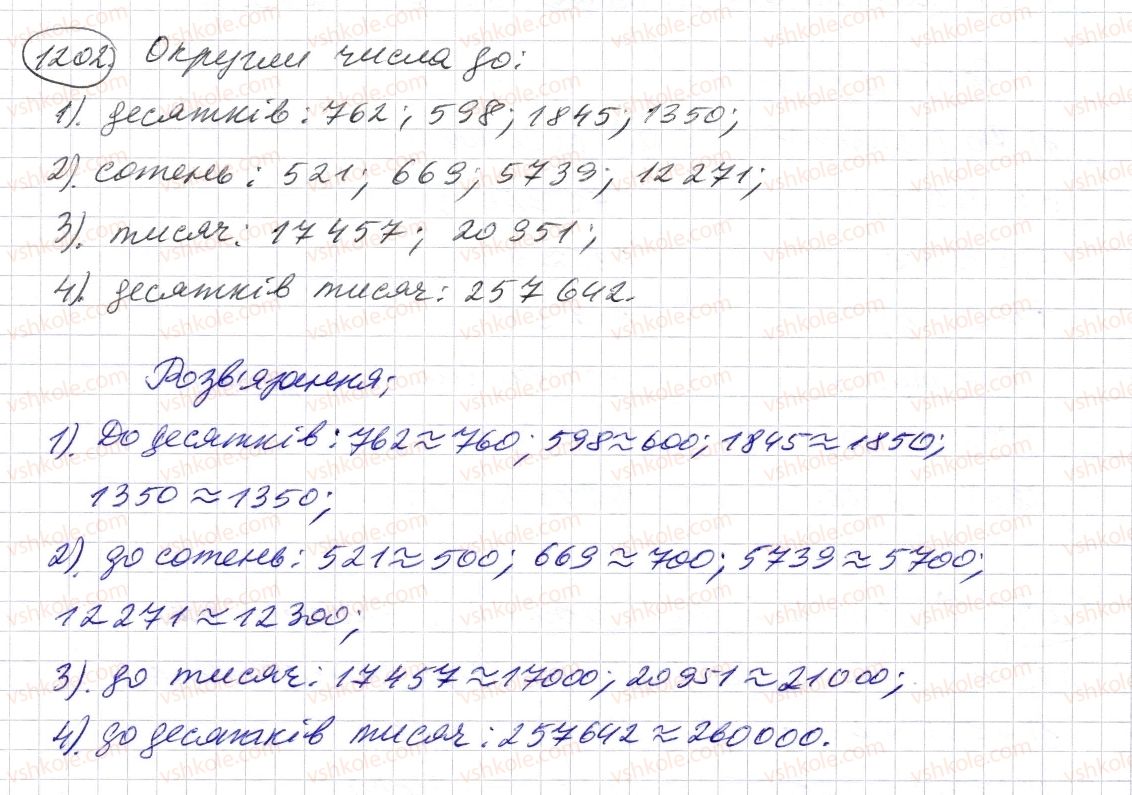 1202. Округли числа до:
1). десятків: 762; 598; 1845; 1350;
2). сотень: 521; 669; 5739; 12 271;
3). тисяч: 17 457; 20 951;
4). десятків тисяч: 257 642.
Розв'язання;
1). До десятків: 762 ≈ 760; 598 ≈ 600; 1845 ≈ 1850;
1350 ≈ 1350;
2). до сотень: 521 ≈ 500; 669 ≈ 700; 5739 ≈ 5700;
12 271 ≈ 12 300;
3). до тисяч: 17 457 ≈ 17000; 20 951 ≈ 21 000;
4). до десятків тисяч: 257 642 ≈ 260 000.